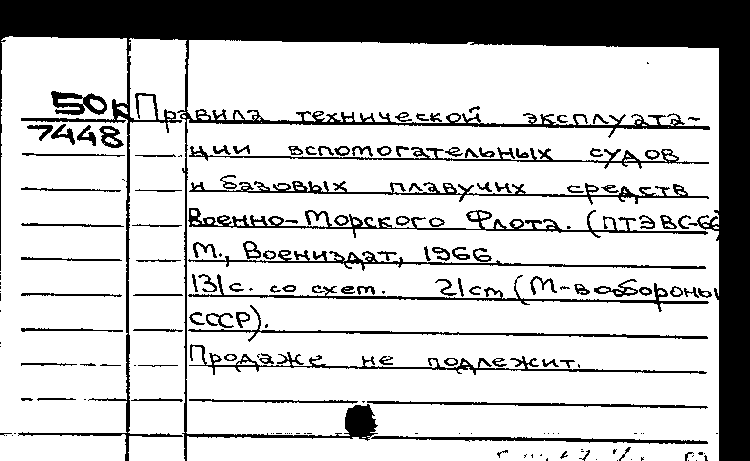 50к Правила технической эксплуата-
7448
ции вспомогательных судов
и базовых плавучих средств
Военно-Морского Флота. (ПТЭВС-66)
М., Воениздат, 1966.
131с. со схем. 21cm (М-во обороны
СССР).
Продаже не подлежит.